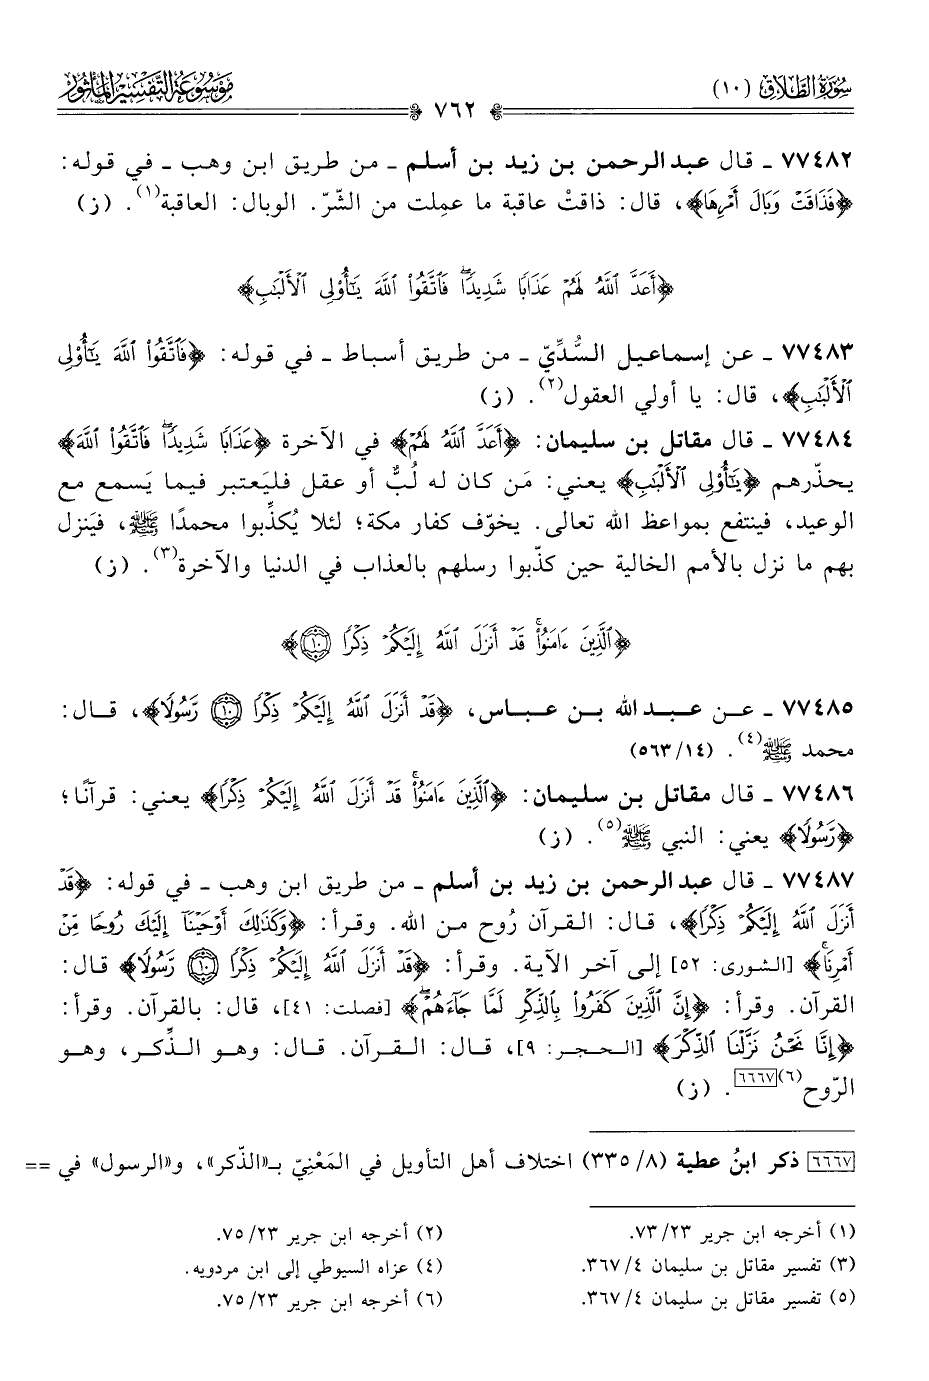 سُورَةُ الطَّلَاقِ (١٠)
٧٦٢
مَوْسُوعَةُ التَّفْسِيرِ المَأْثُورِ
٧٧٤٨٢ ـ قال عبد الرحمن بن زيد بن أسلم ـ من طريق ابن وهب ـ في قوله:
﴿فَذَاقَتْ وَبَالَ أَمْرِهَا﴾، قال: ذاقتْ عاقبة ما عمِلت من الشّرّ. الوبال: العاقبة(١). (ز)
﴿أَعَدَّ ٱللَّهُ لَهُمْ عَذَابًا شَدِيدًاۖ فَٱتَّقُوا۟ ٱللَّهَ يَـٰٓأُو۟لِى ٱلْأَلْبَـٰبِ﴾
٧٧٤٨٣ ـ عن إسماعيل السُّدِّيّ ـ من طريق أسباط ـ في قوله: ﴿فَٱتَّقُوا۟ ٱللَّهَ يَـٰٓأُو۟لِى
ٱلْأَلْبَـٰبِ﴾، قال: يا أولي العقول(٢). (ز)
٧٧٤٨٤ ـ قال مقاتل بن سليمان: ﴿أَعَدَّ ٱللَّهُ لَهُمْ﴾ في الآخرة ﴿عَذَابًا شَدِيدًاۖ فَٱتَّقُوا۟ ٱللَّهَ﴾
يحذّرهم ﴿يَـٰٓأُو۟لِى ٱلْأَلْبَـٰبِ﴾ يعني: مَن كان له لُبٌّ أو عقل فليَعتبر فيما يَسمع مع
الوعيد، فينتفع بمواعظ الله تعالى. يخوّف كفار مكة؛ لئلا يُكذِّبوا محمدًا ﷺ، فيَنزل
بهم ما نزل بالأمم الخالية حين كذّبوا رسلهم بالعذاب في الدنيا والآخرة(٣). (ز)
﴿ٱلَّذِينَ ءَامَنُوا۟ۚ قَدْ أَنزَلَ ٱللَّهُ إِلَيْكُمْ ذِكْرًا ١٠﴾
٧٧٤٨٥ ـ عن عبد الله بن عباس، ﴿قَدْ أَنزَلَ ٱللَّهُ إِلَيْكُمْ ذِكْرًا ١٠ رَّسُولًا﴾، قال:
محمد ﷺ(٤). (١٤/ ٥٦٣)
٧٧٤٨٦ ـ قال مقاتل بن سليمان: ﴿ٱلَّذِينَ ءَامَنُوا۟ۚ قَدْ أَنزَلَ ٱللَّهُ إِلَيْكُمْ ذِكْرًا﴾ يعني: قرآنًا؛
﴿رَّسُولًا﴾ يعني: النبي ﷺ(٥). (ز)
٧٧٤٨٧ ـ قال عبد الرحمن بن زيد بن أسلم ـ من طريق ابن وهب ـ في قوله: ﴿قَدْ
أَنزَلَ ٱللَّهُ إِلَيْكُمْ ذِكْرًا﴾، قال: القرآن رُوح من الله. وقرأ: ﴿وَكَذَٰلِكَ أَوْحَيْنَآ إِلَيْكَ رُوحًا مِّنْ
أَمْرِنَاۚ﴾ [الشورى: ٥٢] إلى آخر الآية. وقرأ: ﴿قَدْ أَنزَلَ ٱللَّهُ إِلَيْكُمْ ذِكْرًا ١٠ رَّسُولًا﴾ قال:
القرآن. وقرأ: ﴿إِنَّ ٱلَّذِينَ كَفَرُوا۟ بِٱلذِّكْرِ لَمَّا جَآءَهُمْۖ﴾ [فصلت: ٤١]، قال: بالقرآن. وقرأ:
﴿إِنَّا نَحْنُ نَزَّلْنَا ٱلذِّكْرَ﴾ [الحجر: ٩]، قال: القرآن. قال: وهو الذِّكر، وهو
الرّوح(٦)[٦٦٦٧]. (ز)
[٦٦٦٧] ذكر ابنُ عطية (٨/ ٣٣٥) اختلاف أهل التأويل في المَعْنِيّ بـ«الذّكر»، و«الرسول» في ==
(١) أخرجه ابن جرير ٢٣/ ٧٣.
(٢) أخرجه ابن جرير ٢٣/ ٧٥.
(٣) تفسير مقاتل بن سليمان ٤/ ٣٦٧.
(٤) عزاه السيوطي إلى ابن مردويه.
(٥) تفسير مقاتل بن سليمان ٤/ ٣٦٧.
(٦) أخرجه ابن جرير ٢٣/ ٧٥.